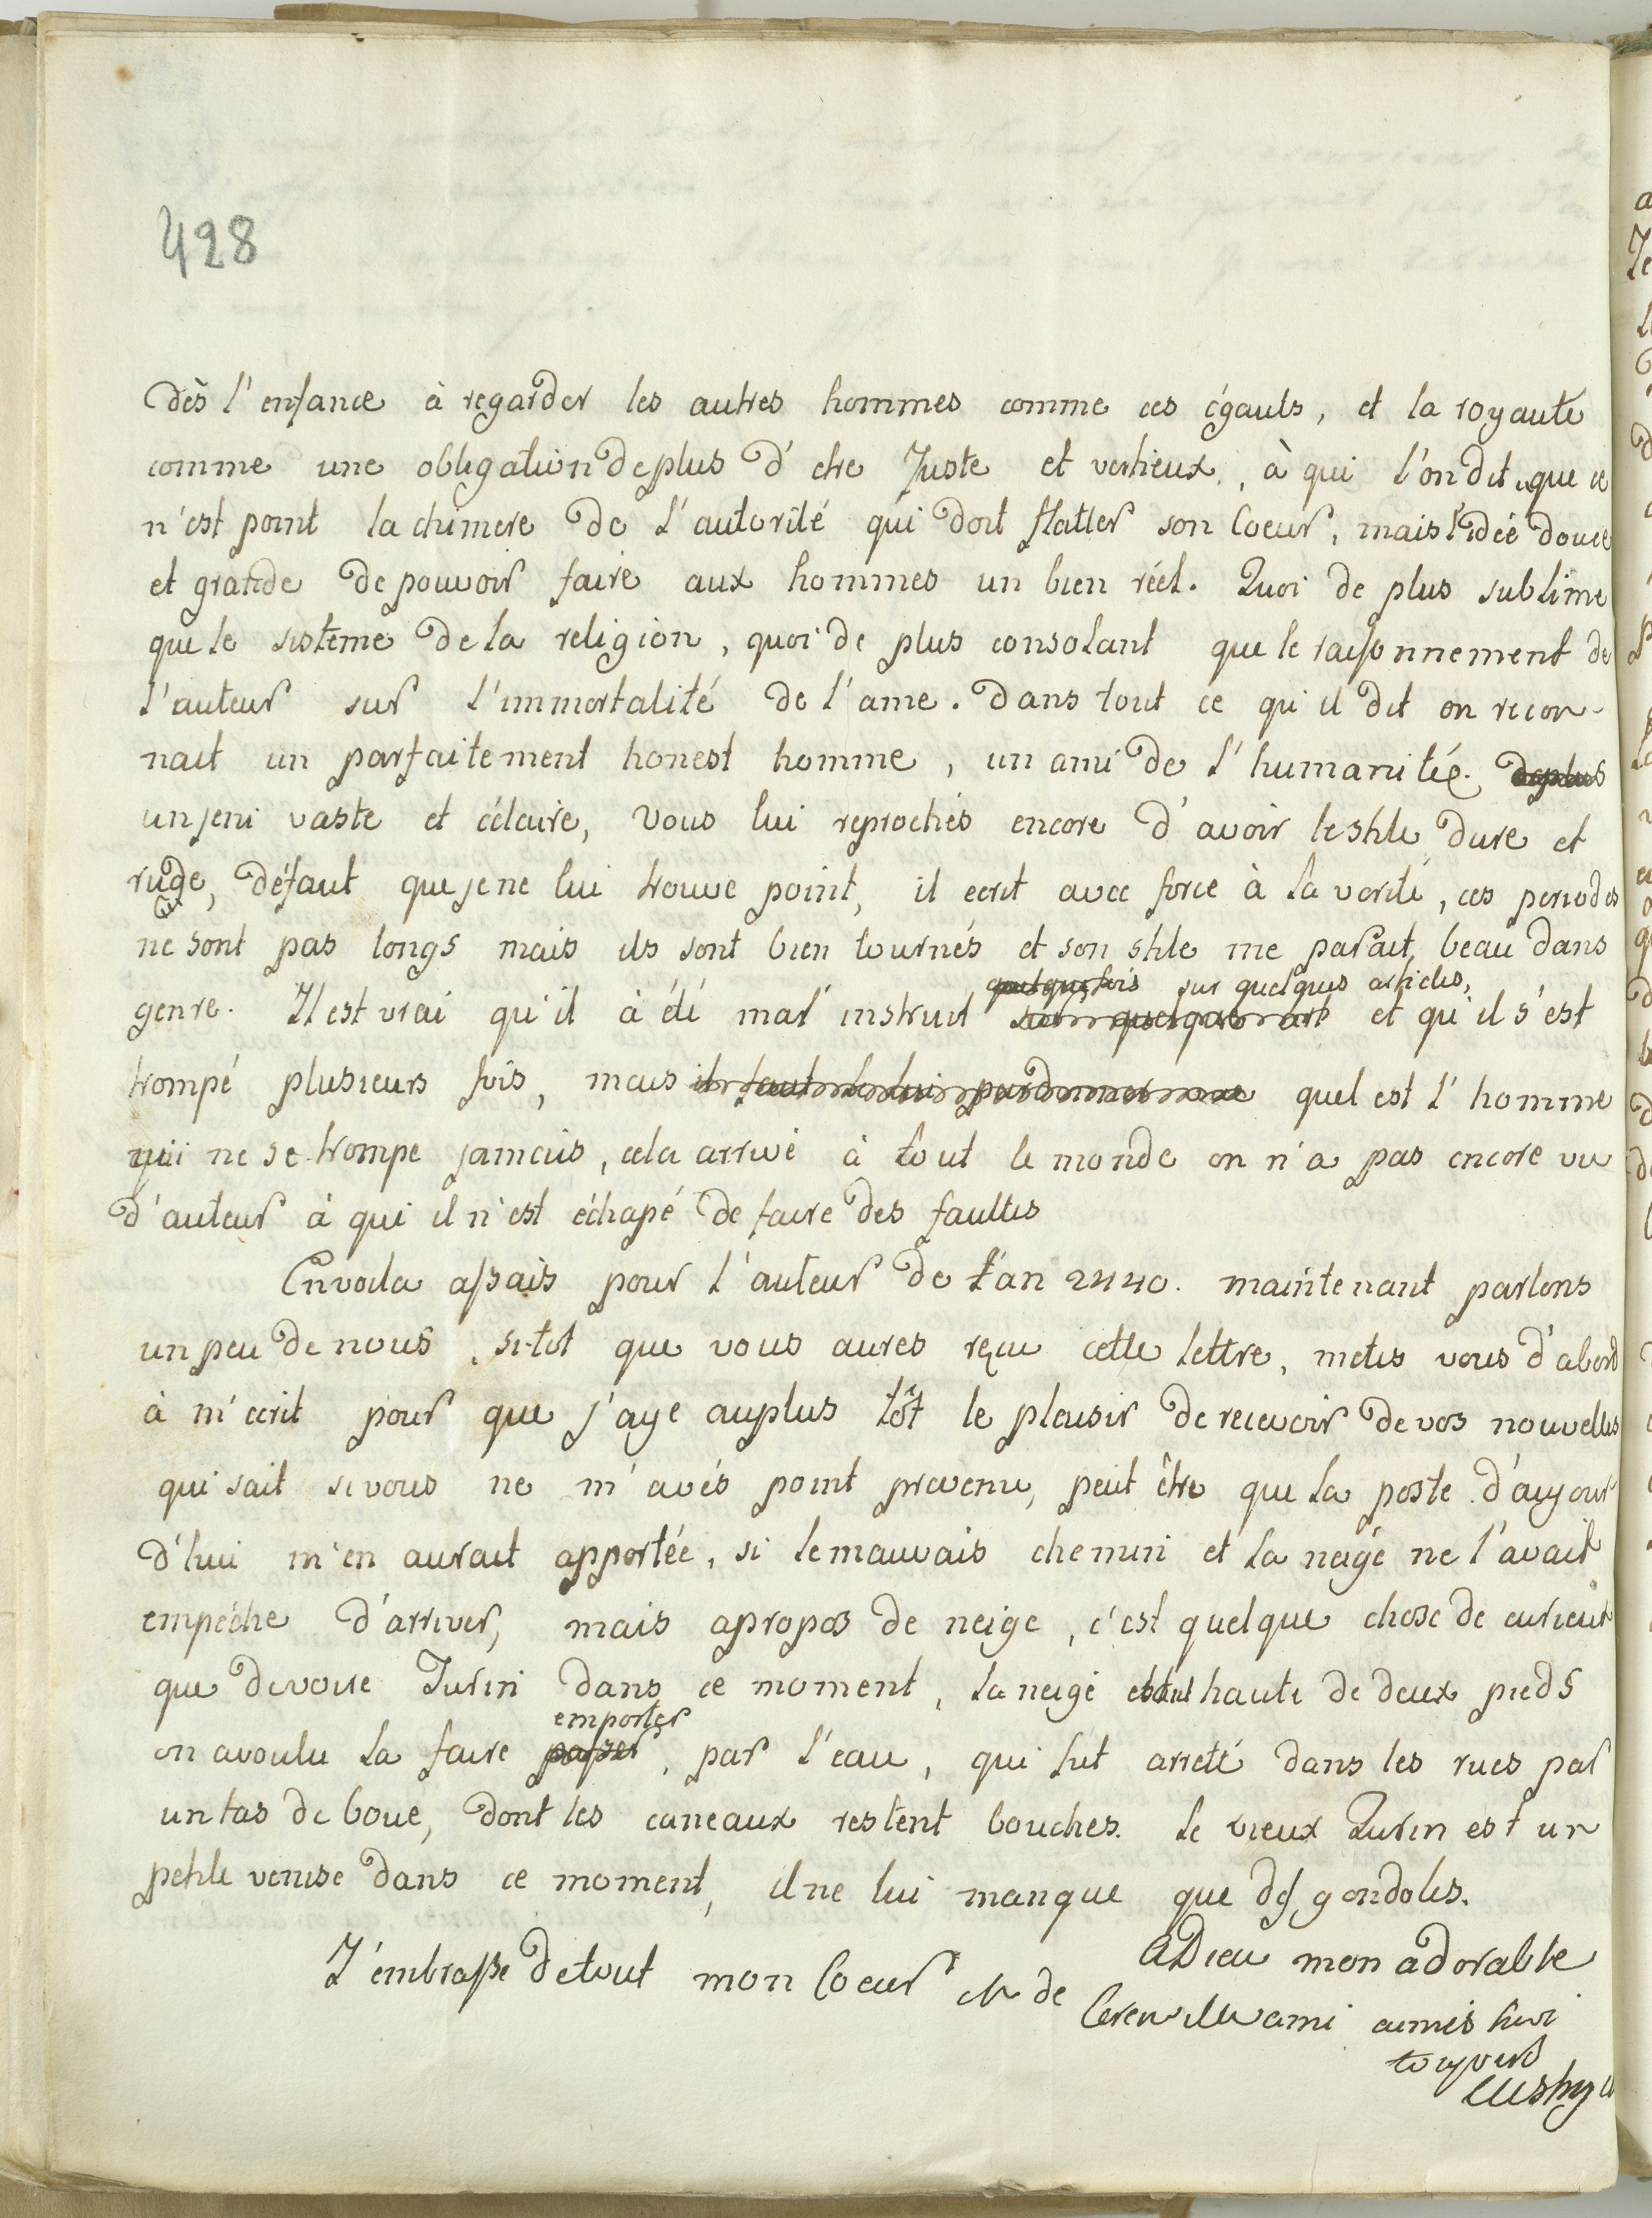 428
dès l'enfance à regarder les autres hommes comme ces égauls, et la royauté
comme une obligation de plus d'etre Juste et vertieux, à qui l'on dit que ce
n'est point la chimere de l'autorité qui doit flatter son Coeur, mais l'idée douce
et grande de pouvoir faire aux hommes un bien réel. Quoi de plus sublime
que le sisteme de la religion, quoi de plus consolant que le raisonnement de
l'auteur sur l'immortalité de l'ame. Dans tout ce qu'il dit on recon-
nait un parfaitement honest homme, un ami de l'humanitée. deplus
un jeni vaste et éclaire, Vous lui reprochés encore d'avoir le stile dure et
rude, défaut que je ne lui trouve point, il ecrit avec force à la verité, ces periodes
ne sont pas longs mais ils sont bien tournés et son stile me parait beau dans
quelque fois sur quelques articles,
genre. Il est vrai qu'il à été mal instruit sur quelque art et qu'il s'est
trompé plusieurs fois, mais il faut le lui pardonner quel est l'homme
qui ne se trompe jamais, cela arrive à tout le monde on n'a pas encore vu
d'auteur à qui il n'est échapé de faire des faultes
En voila assais pour l'auteur de l'an 2440. maintenant parlons
un peu de nous, si-tot que vous aures reçu cette lettre, metes vous d'abord
à m'ecrit pour que j'aye auplus tôt le plaisir de recevoir de vos nouvelles
qui sait si vous ne m'avés point prevenu, peut être que la poste d'aujour
d'hui m'en aurait apportée, si le mauvais chemin et la neige ne l'avait
empéche d'arriver, mais apropos de neige, c'est quelque chose de curieux
que de voire Turin dans ce moment, la neige etait haute de deux pieds
emporter
on avoulu la faire passer, par l'eau, qui fut arreté dans les rues par
un tas de boue, dont les caneaux restent bouches. le vieux Turin est un
petite venise dans ce moment, il ne lui manque que des gondoles.
J'embrasse de tout mon Coeur M de
aDieu mon adorable
ami aimés
toujours